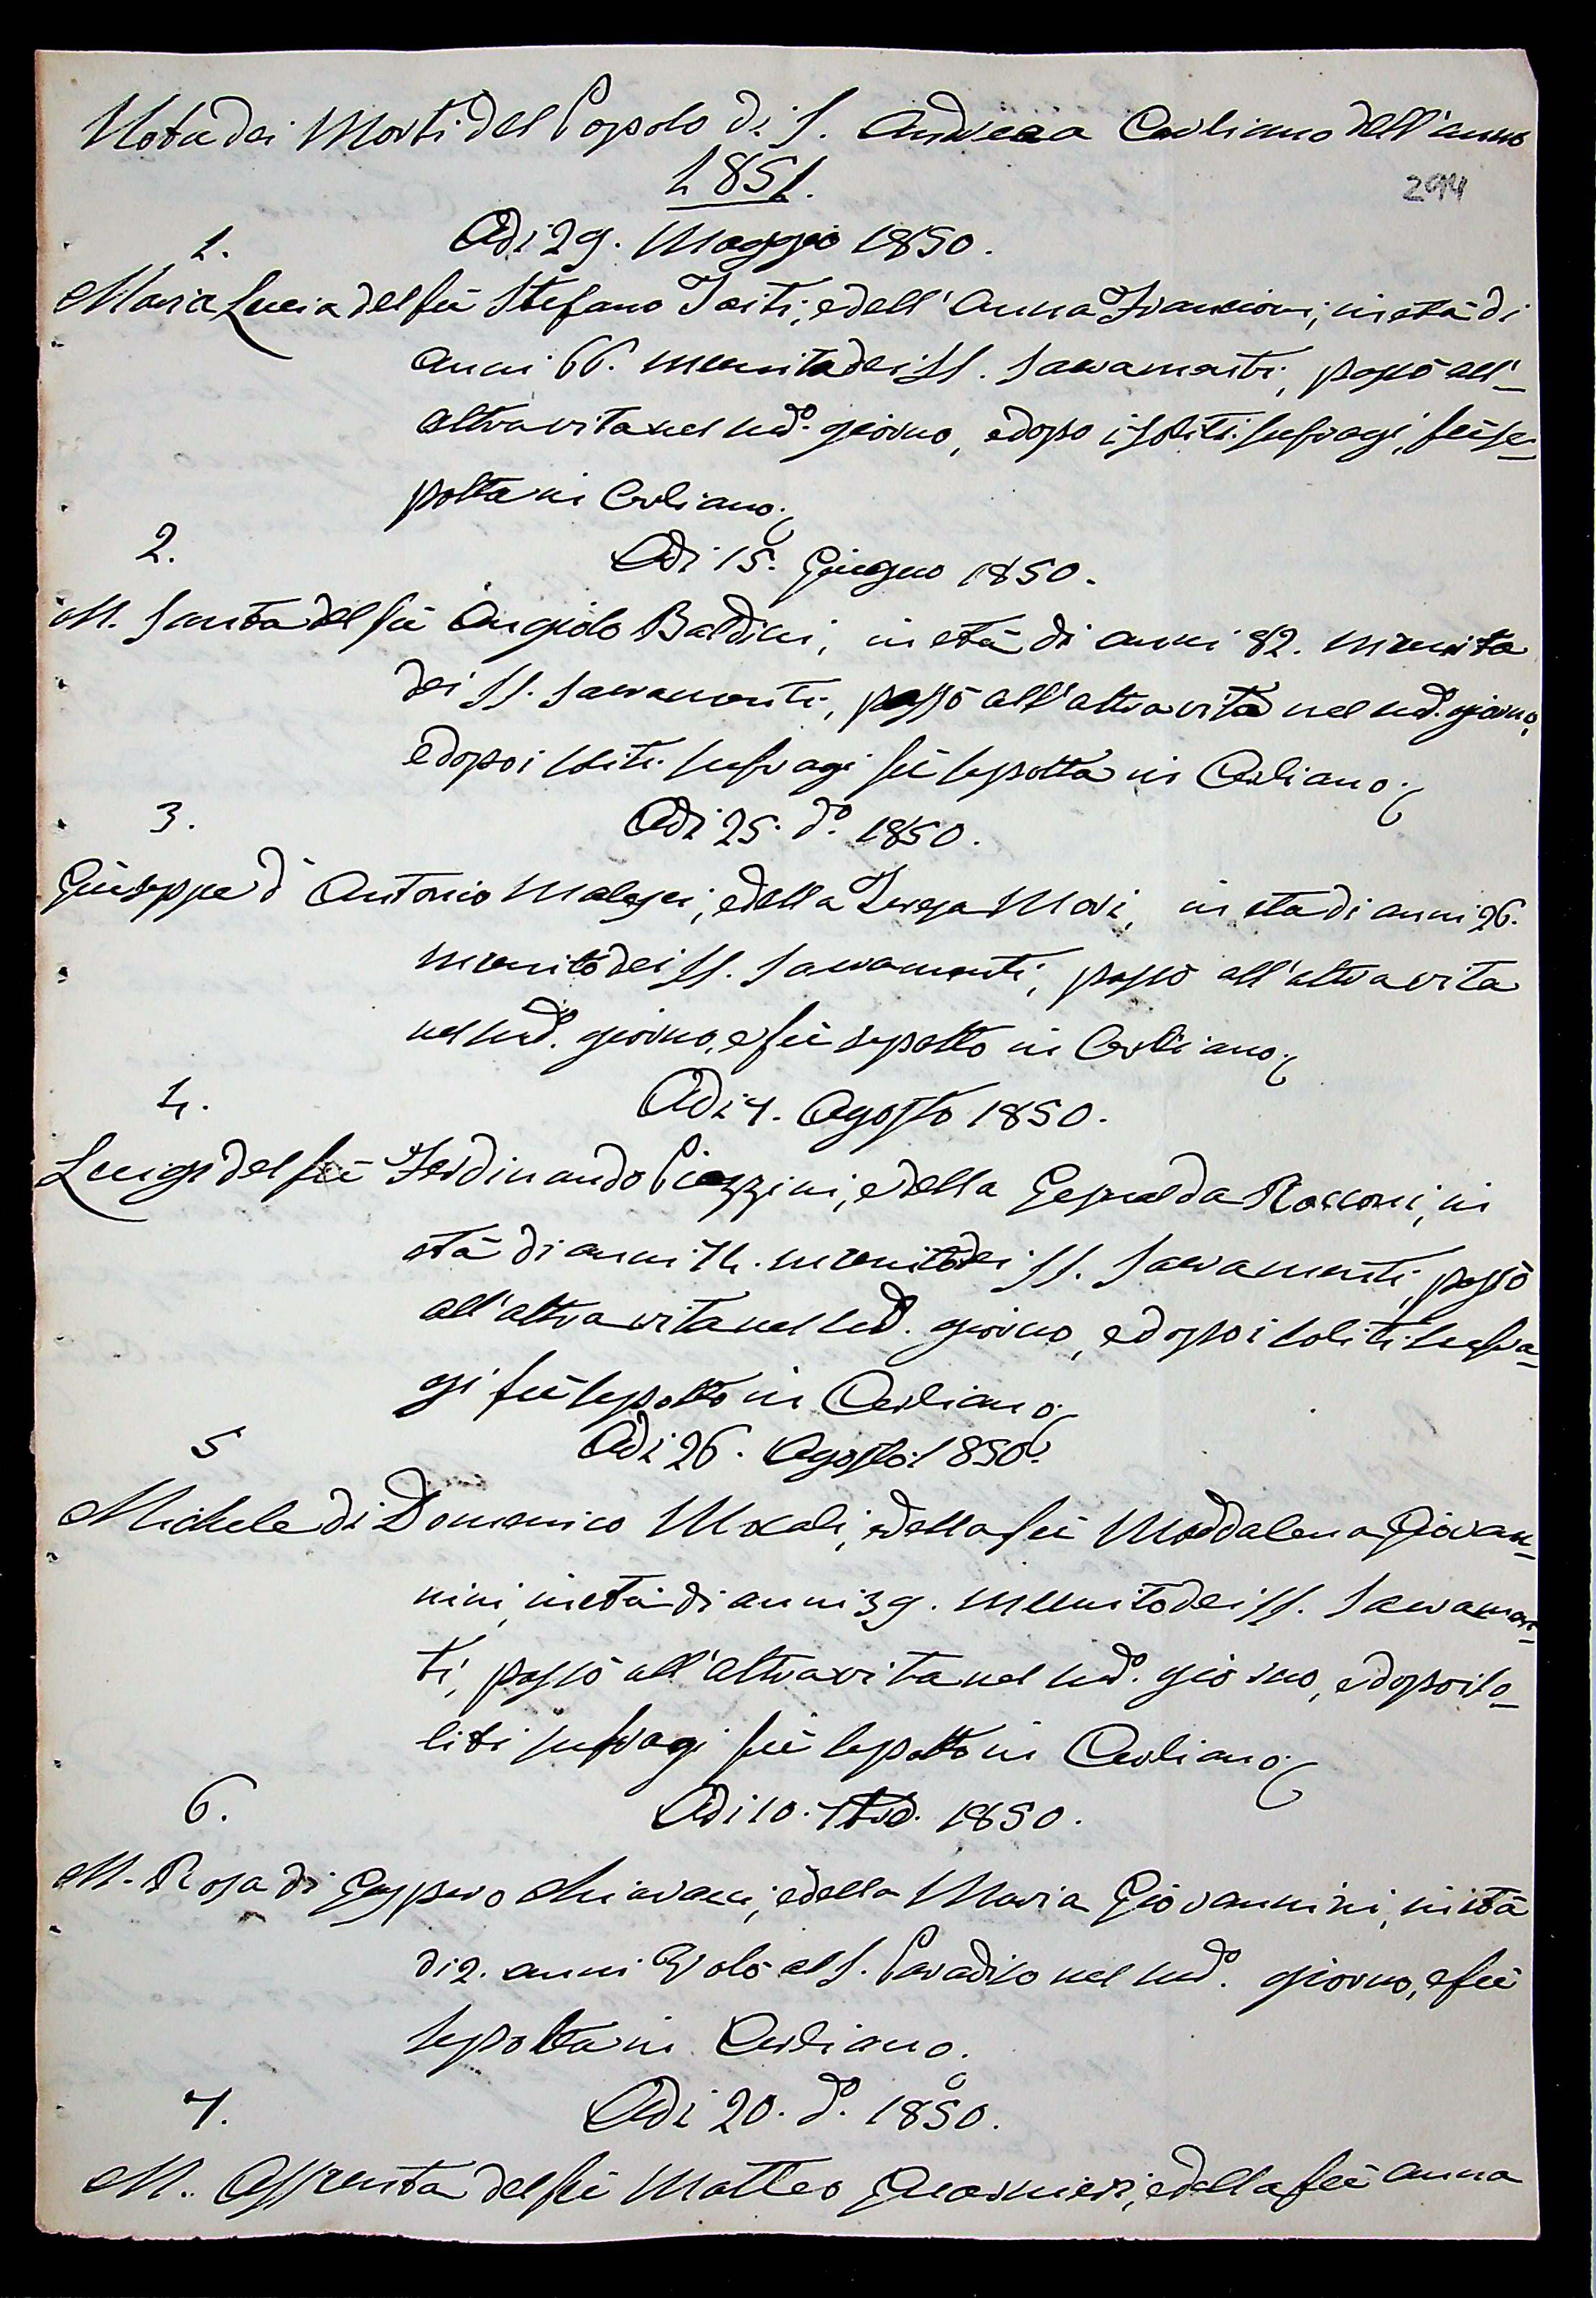 Nota dei Morti del Popolo di S. Andrea a Cerliano dell'anno
1851.
294
1. Adi 29. Maggio 1850.
Maria Lucia del fù Stefano Torti, e dell'Anna Francioni, in età di
anni 66. munita dei SS. Sacramenti, passò all'-
altra vita nel sud.o giorno, e dopo i soliti sufragi, fù se-
polta in Cerliano.
2. Adi 15. Giugno 1850.
M. Santa del fù Angiolo Baldini, in età di anni 82. munita
dei SS. Sacramenti, passò all'altra vita nel sud.o giorno,
e dopo i soliti sufragi fù sepolta in Cerliano.
3. Adi 25. d.o 1850.
Giuseppe d'Antonio Malesci, e della Teresa Mori, in età di anni 26.
munito dei SS. Sacramenti, passò all'altra vita
nel sud.o giorno, e fù sepolto in Cerliano.
4. Adi 7. Agosto 1850.
Luigi del fù Ferdinando Piazzini, e della Gesualda Rossoni, in
età di anni 74. munito dei SS. Sacramenti, passò
all'altra vita nel sud.o giorno, e dopo i soliti sufra-
gi fù sepolto in Cerliano.
5 Adi 26. Agosto 1850.
Michele di Domenico Mxali, e della fù Maddalena Giovan-
nini, in età di anni 39. munito dei SS. Sacramen-
ti, passò all'altra vita nel sud.o giorno, e dopo i so-
liti sufragi fù sepolto in Cerliano.
6. Adi 10. 1850.
M. Rosa di Gaspero Chiavacci, e della Maria Giovannini, in età
di 2. anni Volò al S. Paradiso nel sud.o giorno, e fù
sepolta in Cerliano.
7. Adi 20. d.o 1850.
M. Assunta del fù Matteo Guarnieri, e della fù Anna